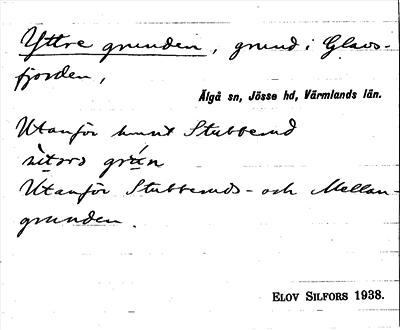 Yttre grunden, grund i Glavs-
fjorden,
Älgå sn, Jösse hd, Värmlands län.
Utanför
Stubberud
Utanför Stubberuds- och Mellan-
grunden.
ELOV SILFORS 1938.